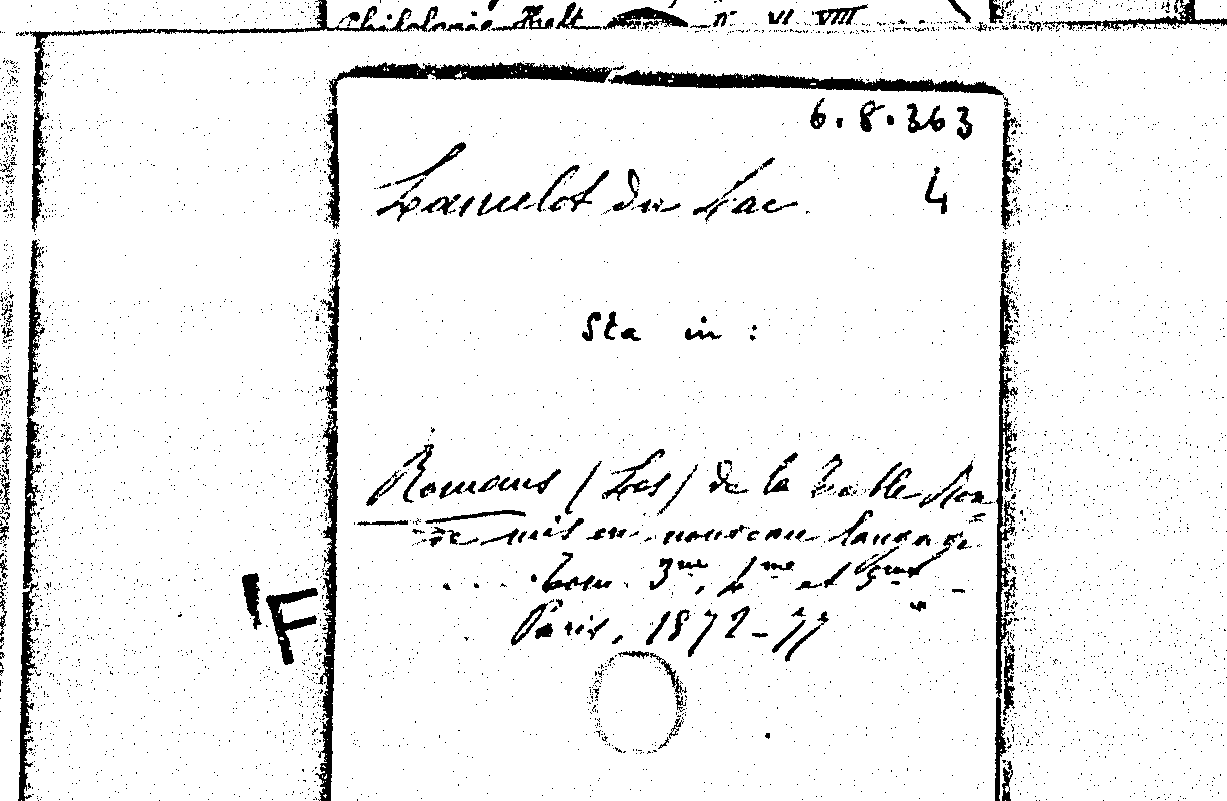 n° VI VIII ...
6.8.363
Lancelot du Lac 4
Sta in :
Romans (Les) de la Table Ron
de mis en nouveau langage
.... Tom. 3me, 4me et 5me -
Paris, 1872-77
F